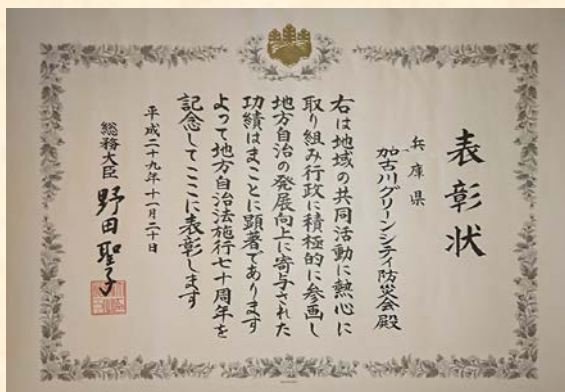 表彰状
兵庫県
加古川グリーンシティ防災会殿
右は地域の共同活動に熱心に
取り組み行政に積極的に参画し
地方自治の発展向上に寄与された
功績はまことに顕著であります
よって地方自治法施行七十周年を
記念してここに表彰します
平成二十九年十一月二十日
総務大臣 野田聖子